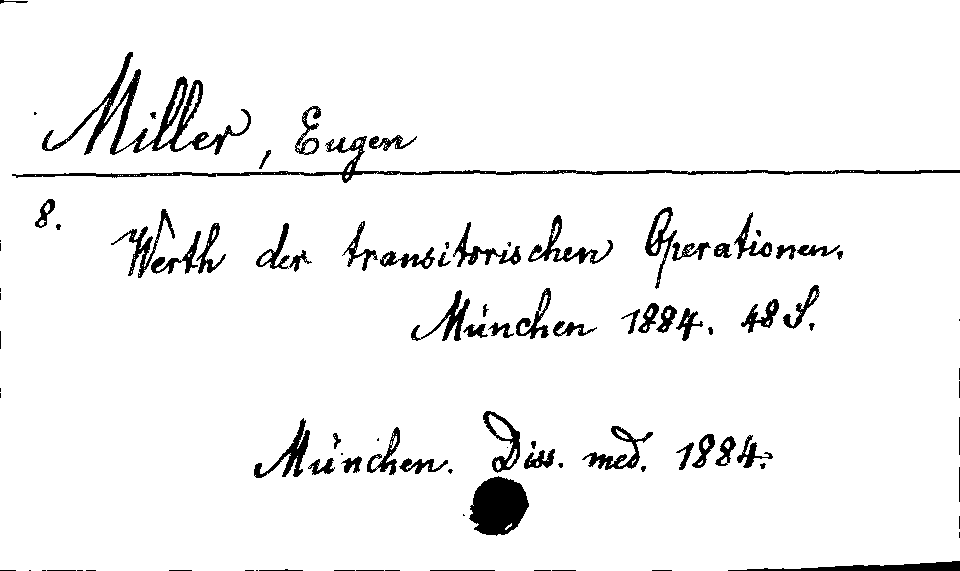 Miller, Eugen
8.
Werth der transitorischen Operationen.
München 1884. 48 S.
München. Diss. med. 1884.